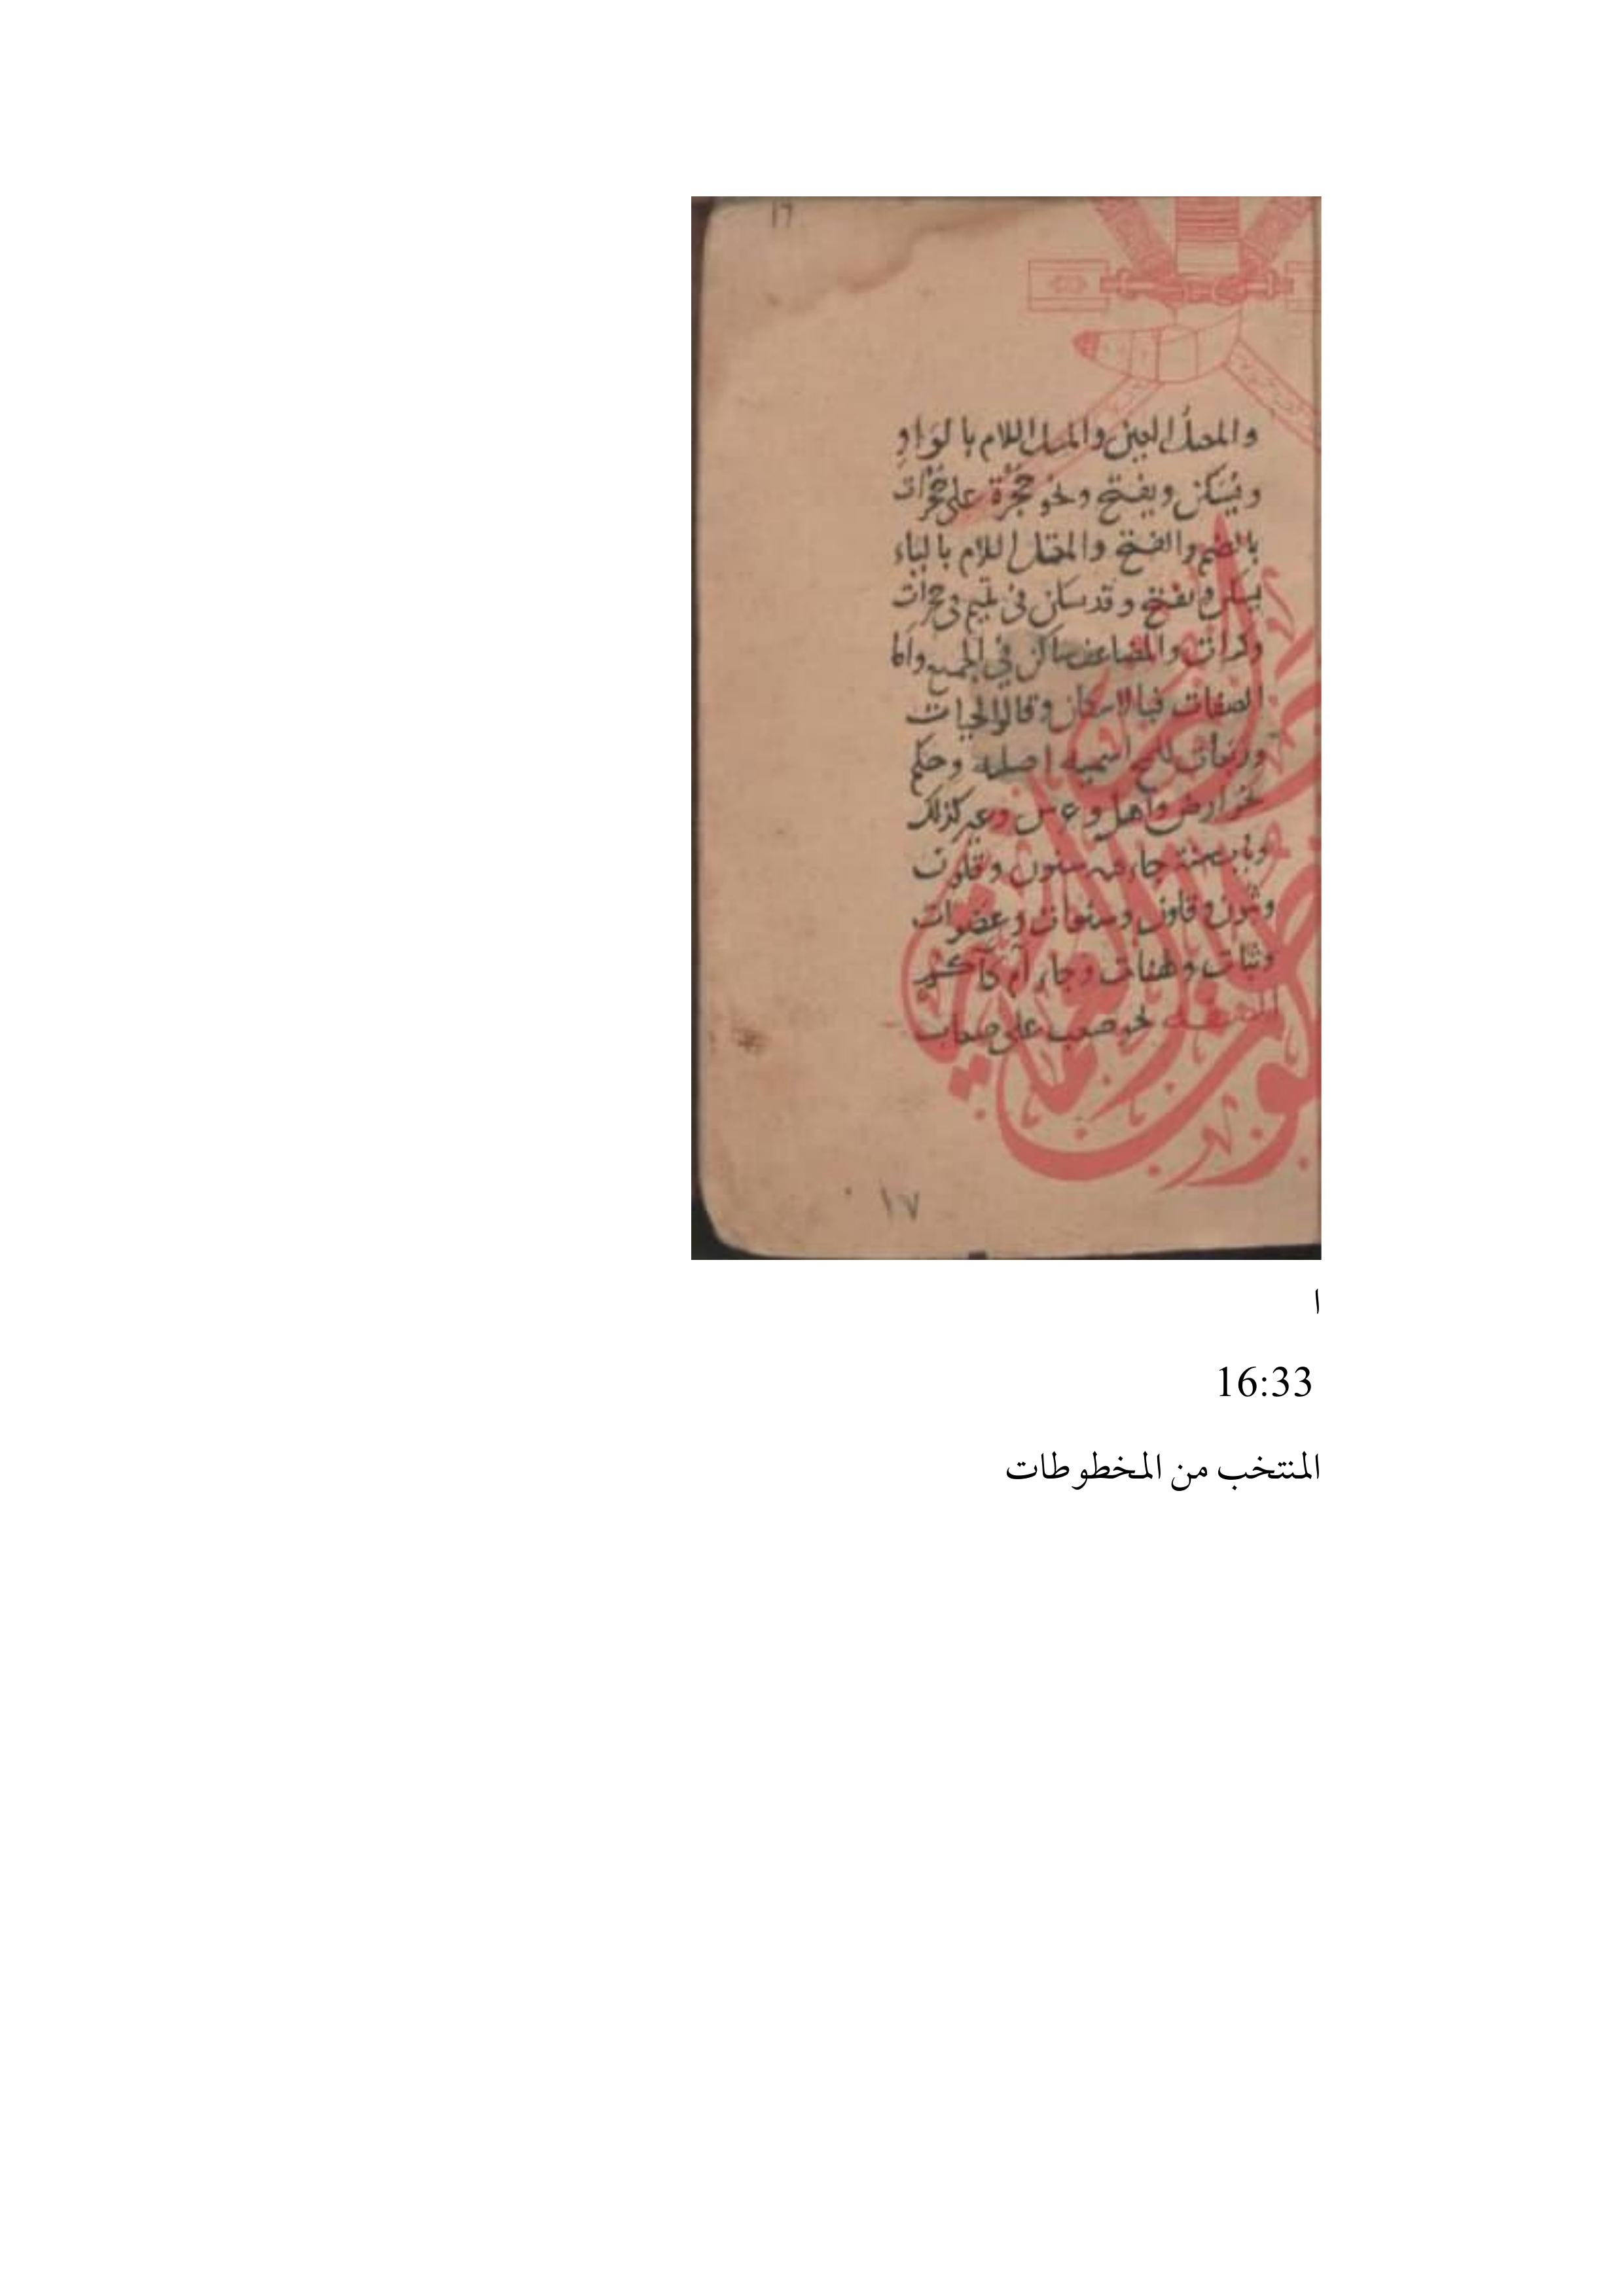 ١٦
والمعتل العين والمعتل اللام بالواو
ويُسكن ويفتح ونحو حُجْرة على حُجُرات
بالضم والفتح والمعتل اللام بالياء
يسكن ويفتح وقد سكن في تميم في حجرات
وكرات والمضاعف ساكن في الجميع واما
الصفات فبالاسكان وقالوا لجبات
وربعات للمح اسمية اصلية وحكم
نحو ارض واهل وعرس وعير كذلك
وباب سنة جاء فيه سنون وقلون
وثبون وقلون وسنوات وعضوات
وثبات وهنات وجاء آم كآكم
الصفة نحو صعب على صعاب
١٧
ا
16:33
المنتخب من المخطوطات